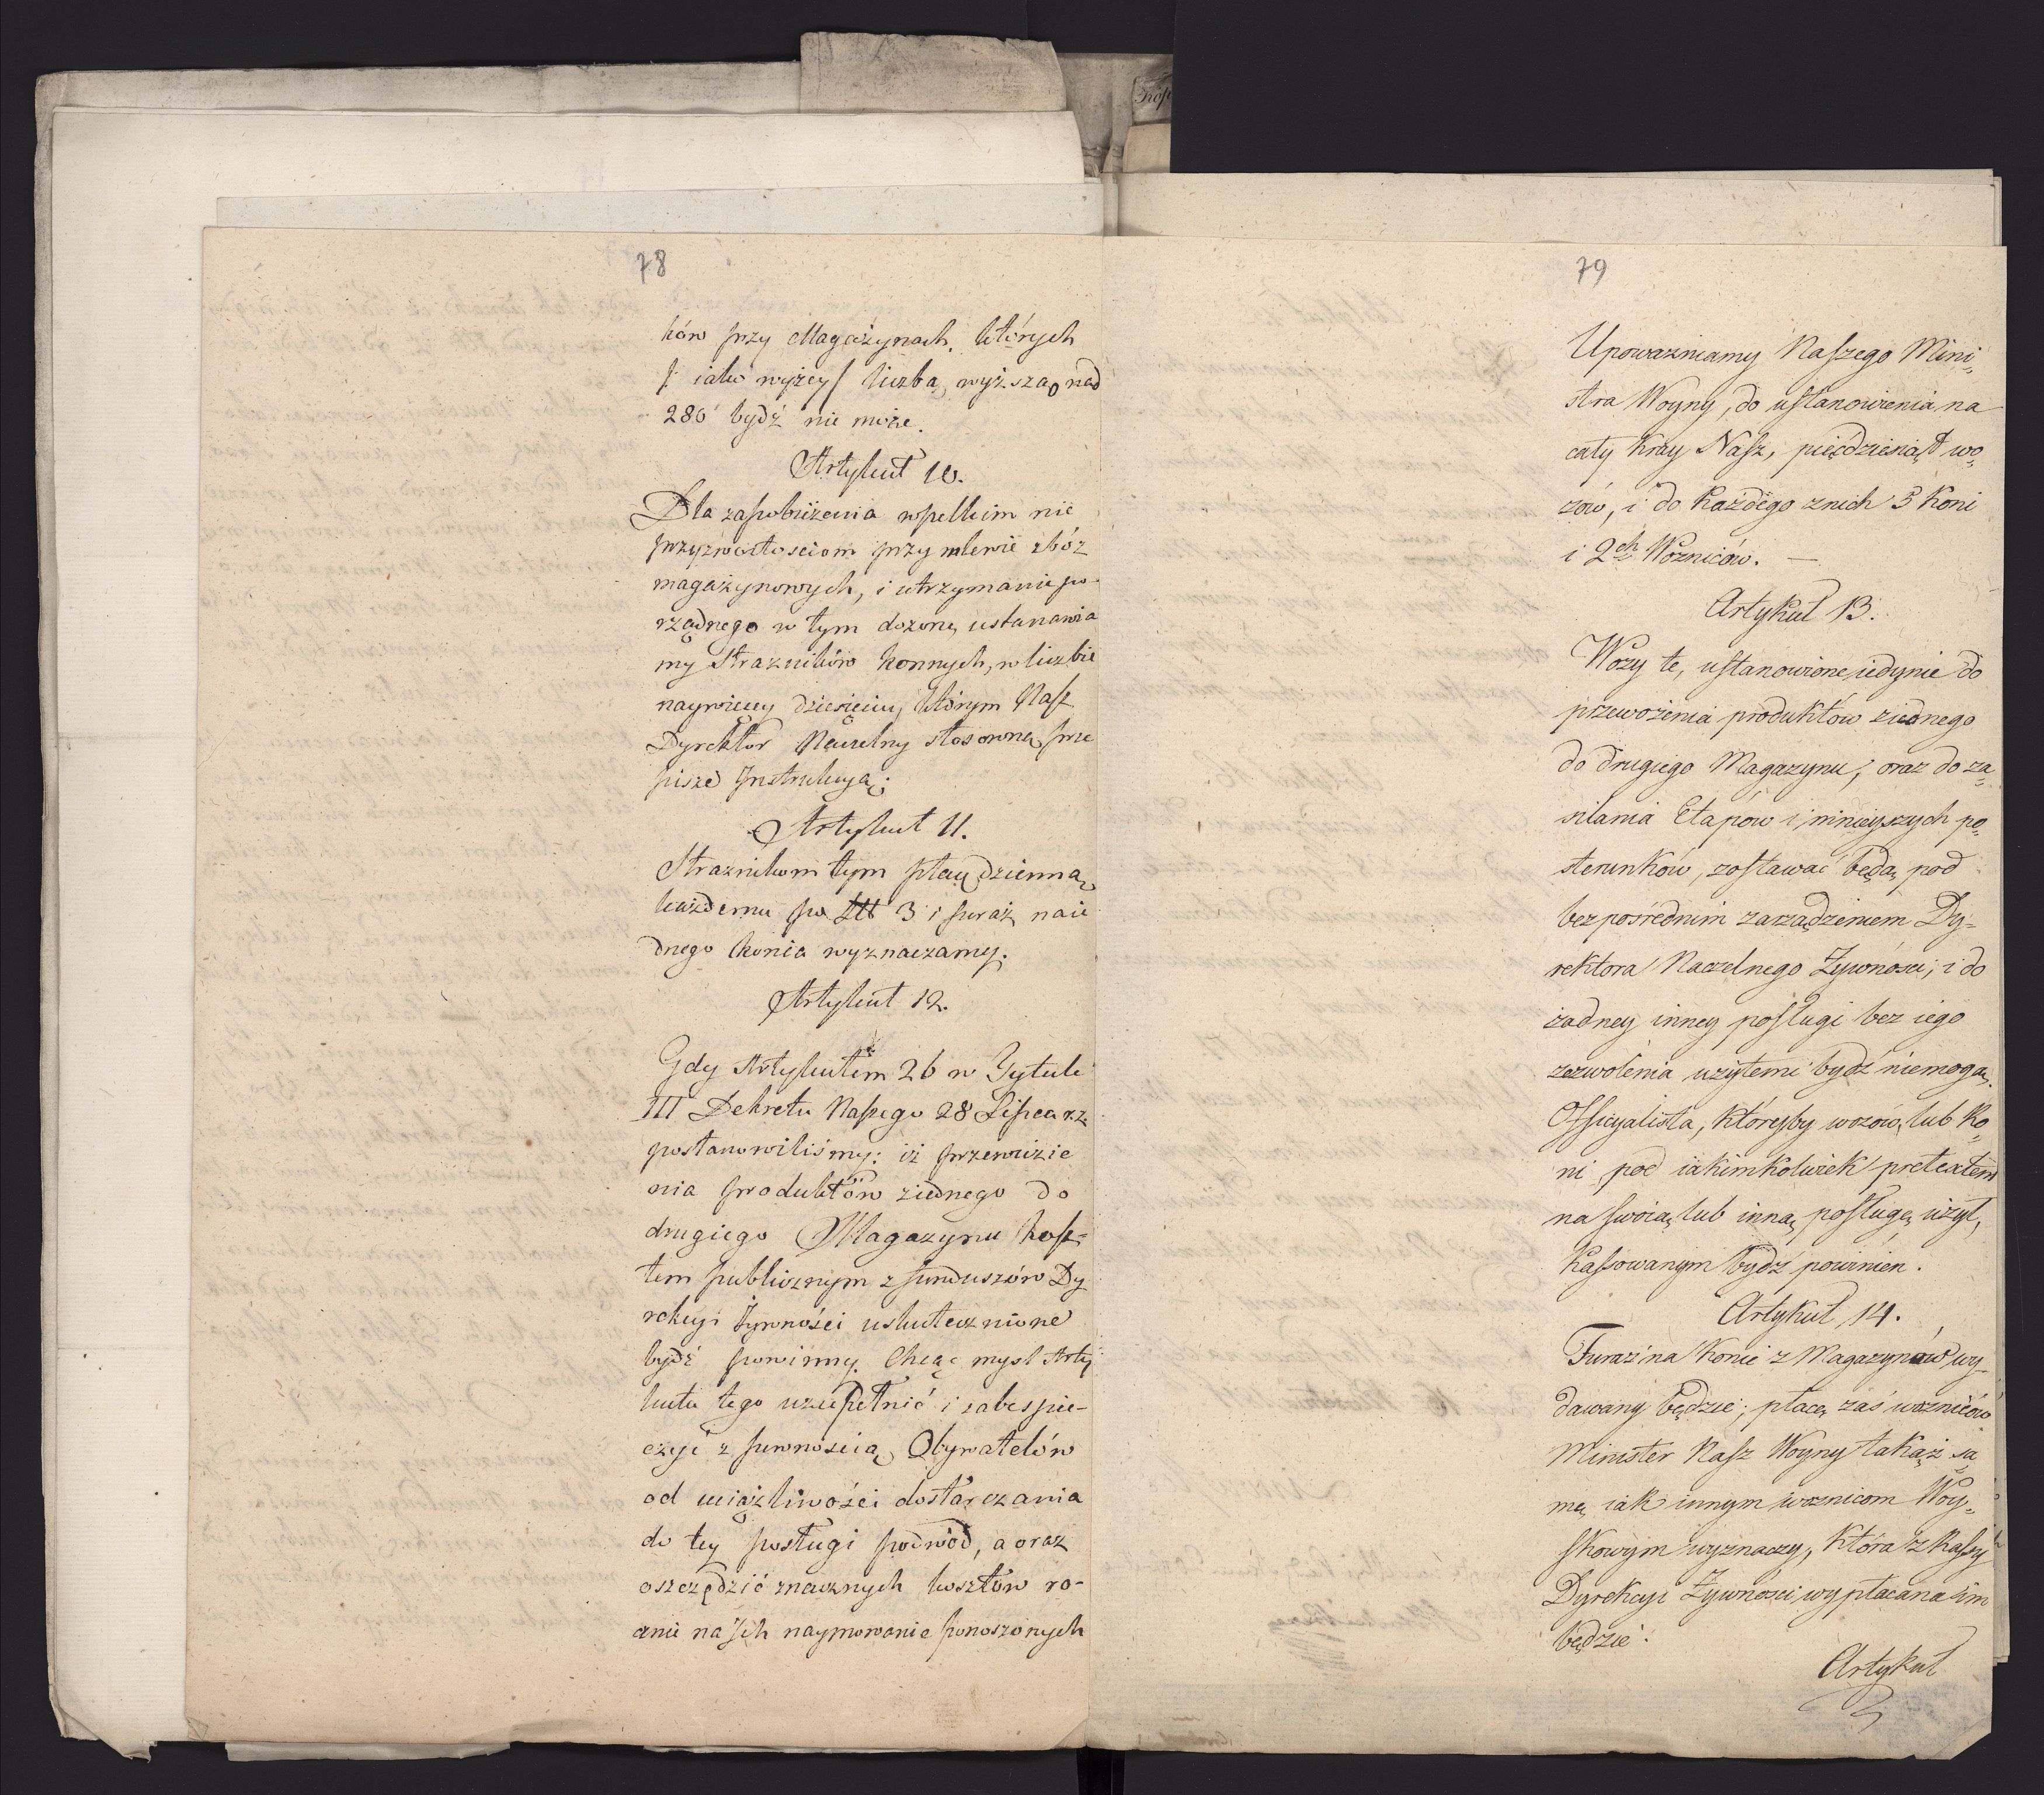 78
ków przy Magażynach, których
/: iako wyżey/ liczba, wyższa nad
280 bydź nie może.
Artykuł 10.
Dla zapobiżenia wszelkim nie
przyzwoitosciom przy mlewie zbóż
magażynowych, i utrzymanie po-
rządnego w tym dozoru, ustanawia
my Strazników konnych, w liczbie
naywięcey dziesięciu, którym Nasz
Dyrektor Naczelny stosowną prze
pisze Jnstrukcyą;
Artykuł 11.
Straznikom tym płacę dzienną,
każdemu po 3 i furaż na ie
dnego konia wyznaczamy.
Artykuł 12.
Gdy Artykułem 26 w Tytule
III Dekretu Naszego 28 Lipca r.z
postanowiliśmy: iż przewozie
nia produktów ziednego do
drugiego Magazynu kosz=
tem publicznym z funduszów Dy
rekcyi Żywności uskutecznione
bydź powinny. Chcąc mysl Arty
kułu tego uzupełnić i zabespie-
czyć z pewnoscią, Obywatelów
od uciążliwości dostarczania
do tey posługi podwód, a oraz
oszczędzić znacznych kosztów ro-
cznie na Jch naymowanie ponoszonych
79
Upoważniamy Naszego Mini=
stra Woyny, do ustanowienia na
cały Kray Nasz, pięćdziesiąt wo=
zów, i do każdego z nich 3 Koni
i 2ch Woźniców. —
Artykuł 13.
Wozy te, ustanowione iedynie do
przewożenia produktów ziednego
do drugiego Magazynu, oraz do za=
silania Etapów i mnieyszych po=
sterunków, zostawać będą pod
bezpośrednim zarządzeniem Dy=
rektora Naczelnego Żywności; i do
żadney inney posługi bez iego
zezwolenia użytemi bydź niemogą.
Officyalista, któryby wozów, lub Ko=
ni pod iakimkolwiek pretextem
na swoią, lub inną, posługę, użył,
Kassowanym bydź powinien.
Artykuł 14.
Furaż na Konie z Magazynów wy=
dawany będzie; płacę zaś woźniców
Minister Nasz Woyny takąż sa
mą iak innym woznicom Woy=
skowym wyznaczy, która z Kassy
Dyrekcyi Żywności wypłacana im
będzie.
Artykuł